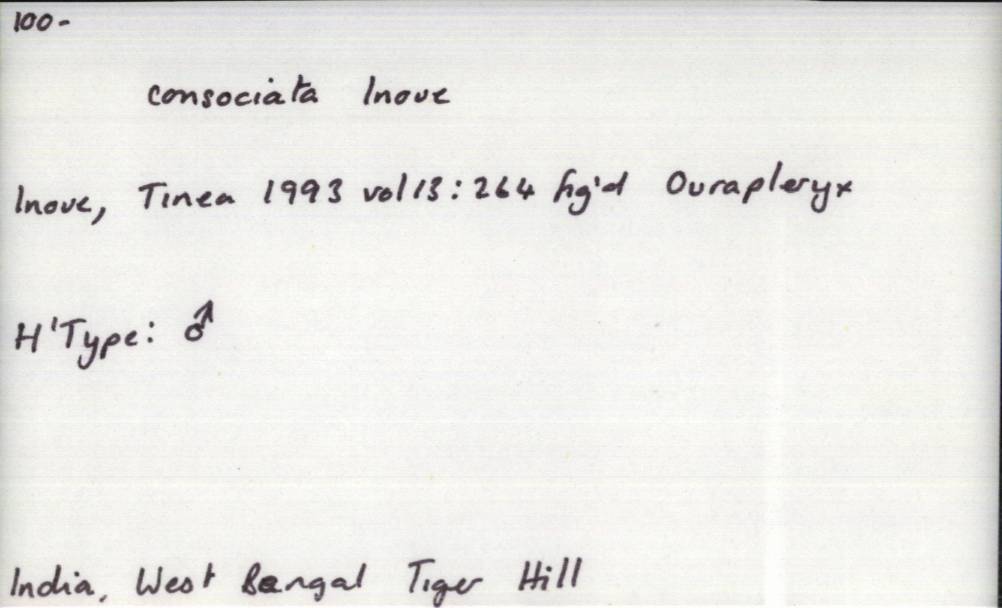 100-
consociata Inoue
Inoue, Tinea 1993 vol 13: 264 fig'd Ourapteryx
H'Type: ♂
India, West Bengal Tiger Hill